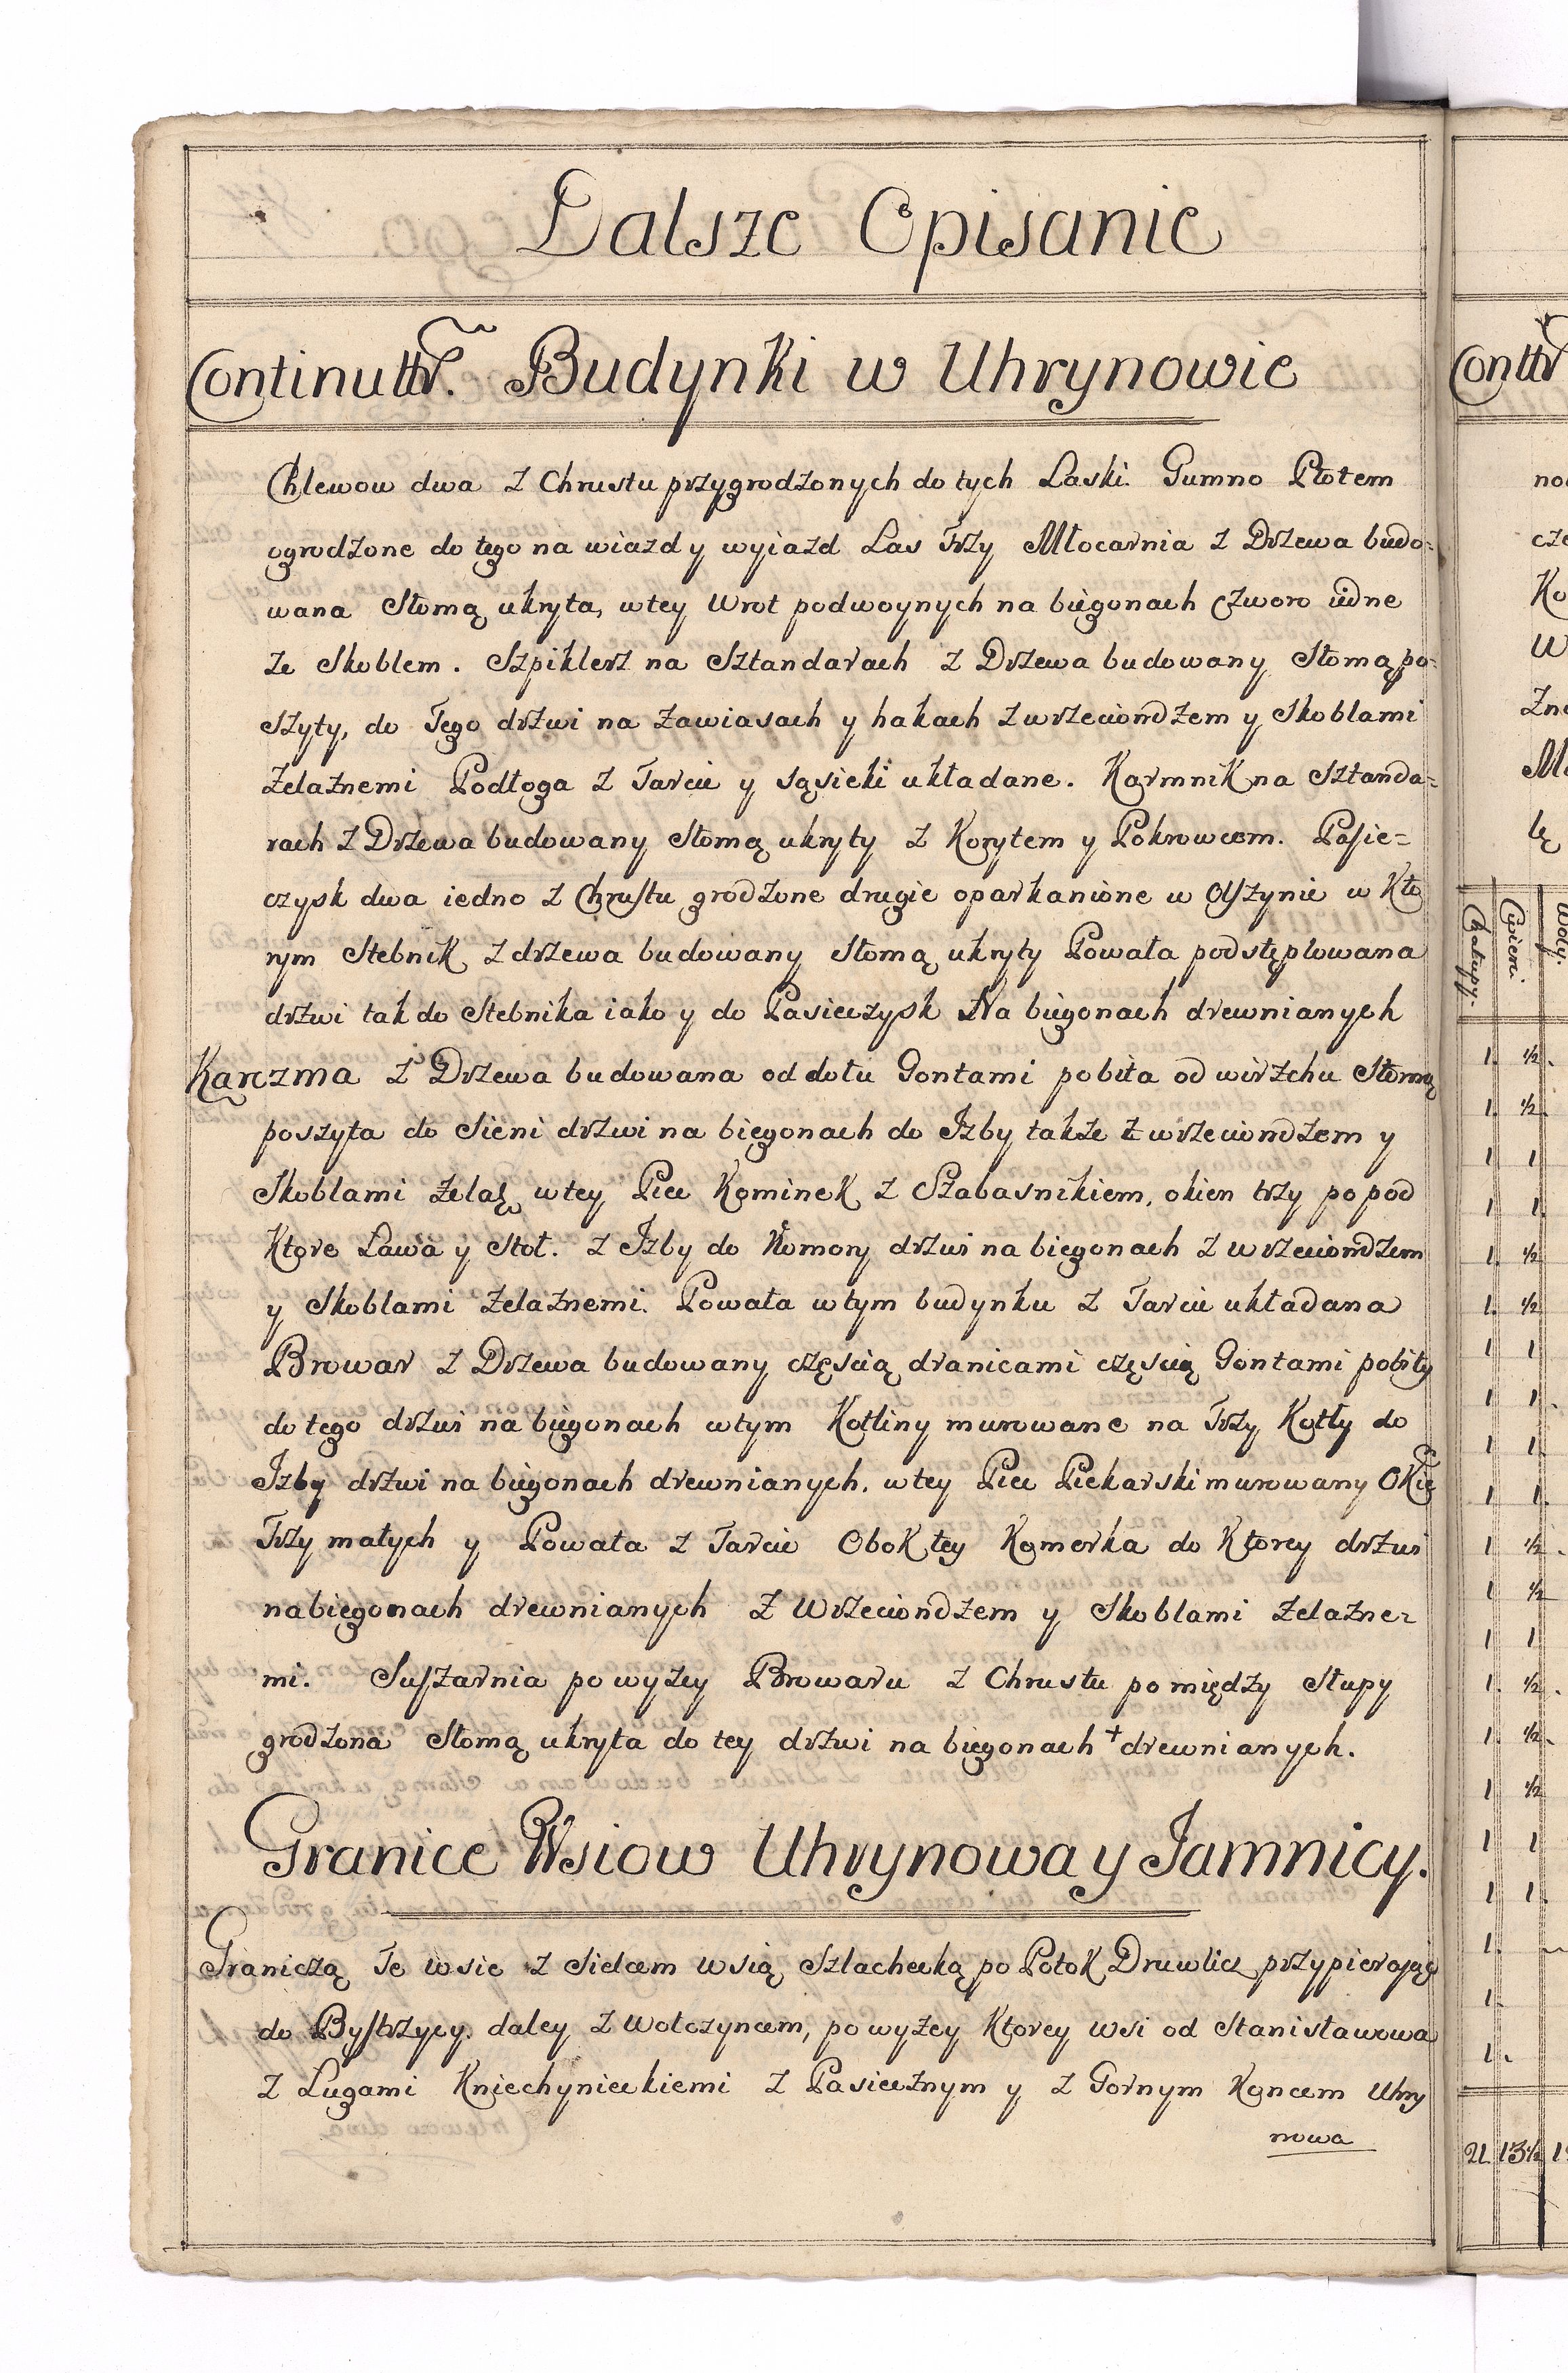 Dalsze Opisanie
Continuttr. Budynki w Uhrynowie
Chlewow dwa z Chrustu przygrodzonych do tych Laski. Gumno Płotem
ogrodzone do tego na wiazd y wyiazd Las Trzy Młocarnia z Drzewa budo=
wana Słomą ukryta, w tey Wrot podwoynych na biegonach czworo iedne
ze Skoblem. Szpiklerz na Sztandarach z Drzewa budowany Słomą po=
szyty, do Tego drzwi na zawiasach y hakach z wrzeciondzem y Skoblami
żelaznemi Podłoga z Tarcic y sąsieki układane. Karmnik na Sztanda=
rach z Drzewa budowany Słomą ukryty z Korytem y Pokrowcem. Pasie=
czysk dwa iedno z Chrustu grodzone drugie oparkanione w Olszynie w Kto
rym Stebnik z drzewa budowany Słomą ukryty Powała podstęplowana
drzwi tak do Stebnika iako y do Pasieczysk Na biegonach drewnianych
Karczma z Drzewa budowana od dołu Gontami pobita od wirzchu Słomą
poszyta do Sieni drzwi na biegonach do Izby także z wrzeciondzem y
Skoblami żelaz, w tey Piec Kominek z Szabasnikiem, okien trzy popod
Ktore Ława y Stoł. z Izby do Komory drzwi na biegonach z wrzeciondzem
y Skoblami żelaznemi. Powała w tym budynku z Tarcic układana
Browar z Drzewa budowany częscią dranicami częscią Gontami pobity
do tego drzwi na biegonach w tym Kotliny murowane na Trzy Kotły do
Izby drzwi na biegonach drewnianych, w tey Piec Piekarski murowany Okię
Trzy małych y Powała z Tarcic Obok tey Komerka do Ktorey drzwi
na biegonach drewnianych z Wrzeciondzem y Skoblami żelazne=
mi. Suszarnia powyżey Browaru z Chrustu pomiędzy Słupy
grodzona Słomą ukryta do tey drzwi na biegonach + drewnianych.
Granice Wsiow Uhrynowa y Jamnicy.
Graniczą Te wsie z Sielcem wsią Szlachecką po Potok Druwlicz przypieraiąc
do Bystrzycy. daley z Wołczyncem, powyżey Ktorey wsi od Stanisławowa
z Ługami Kniechynieckiemi z Pasiecznym y z Gornym Koncem Uhry
nowa
Conttr
Chałupy.
Cwierci
Woły.
1. ½.
1. ½.
1 1
1 1.
1. ½
1. ½
1 1
1 1.
1 1.
1 1.
1 ½.
1 ½
1 1
1. ½.
1. ½.
1 ½
1 1
1 1.
1. ~
1.
1.
21 13½